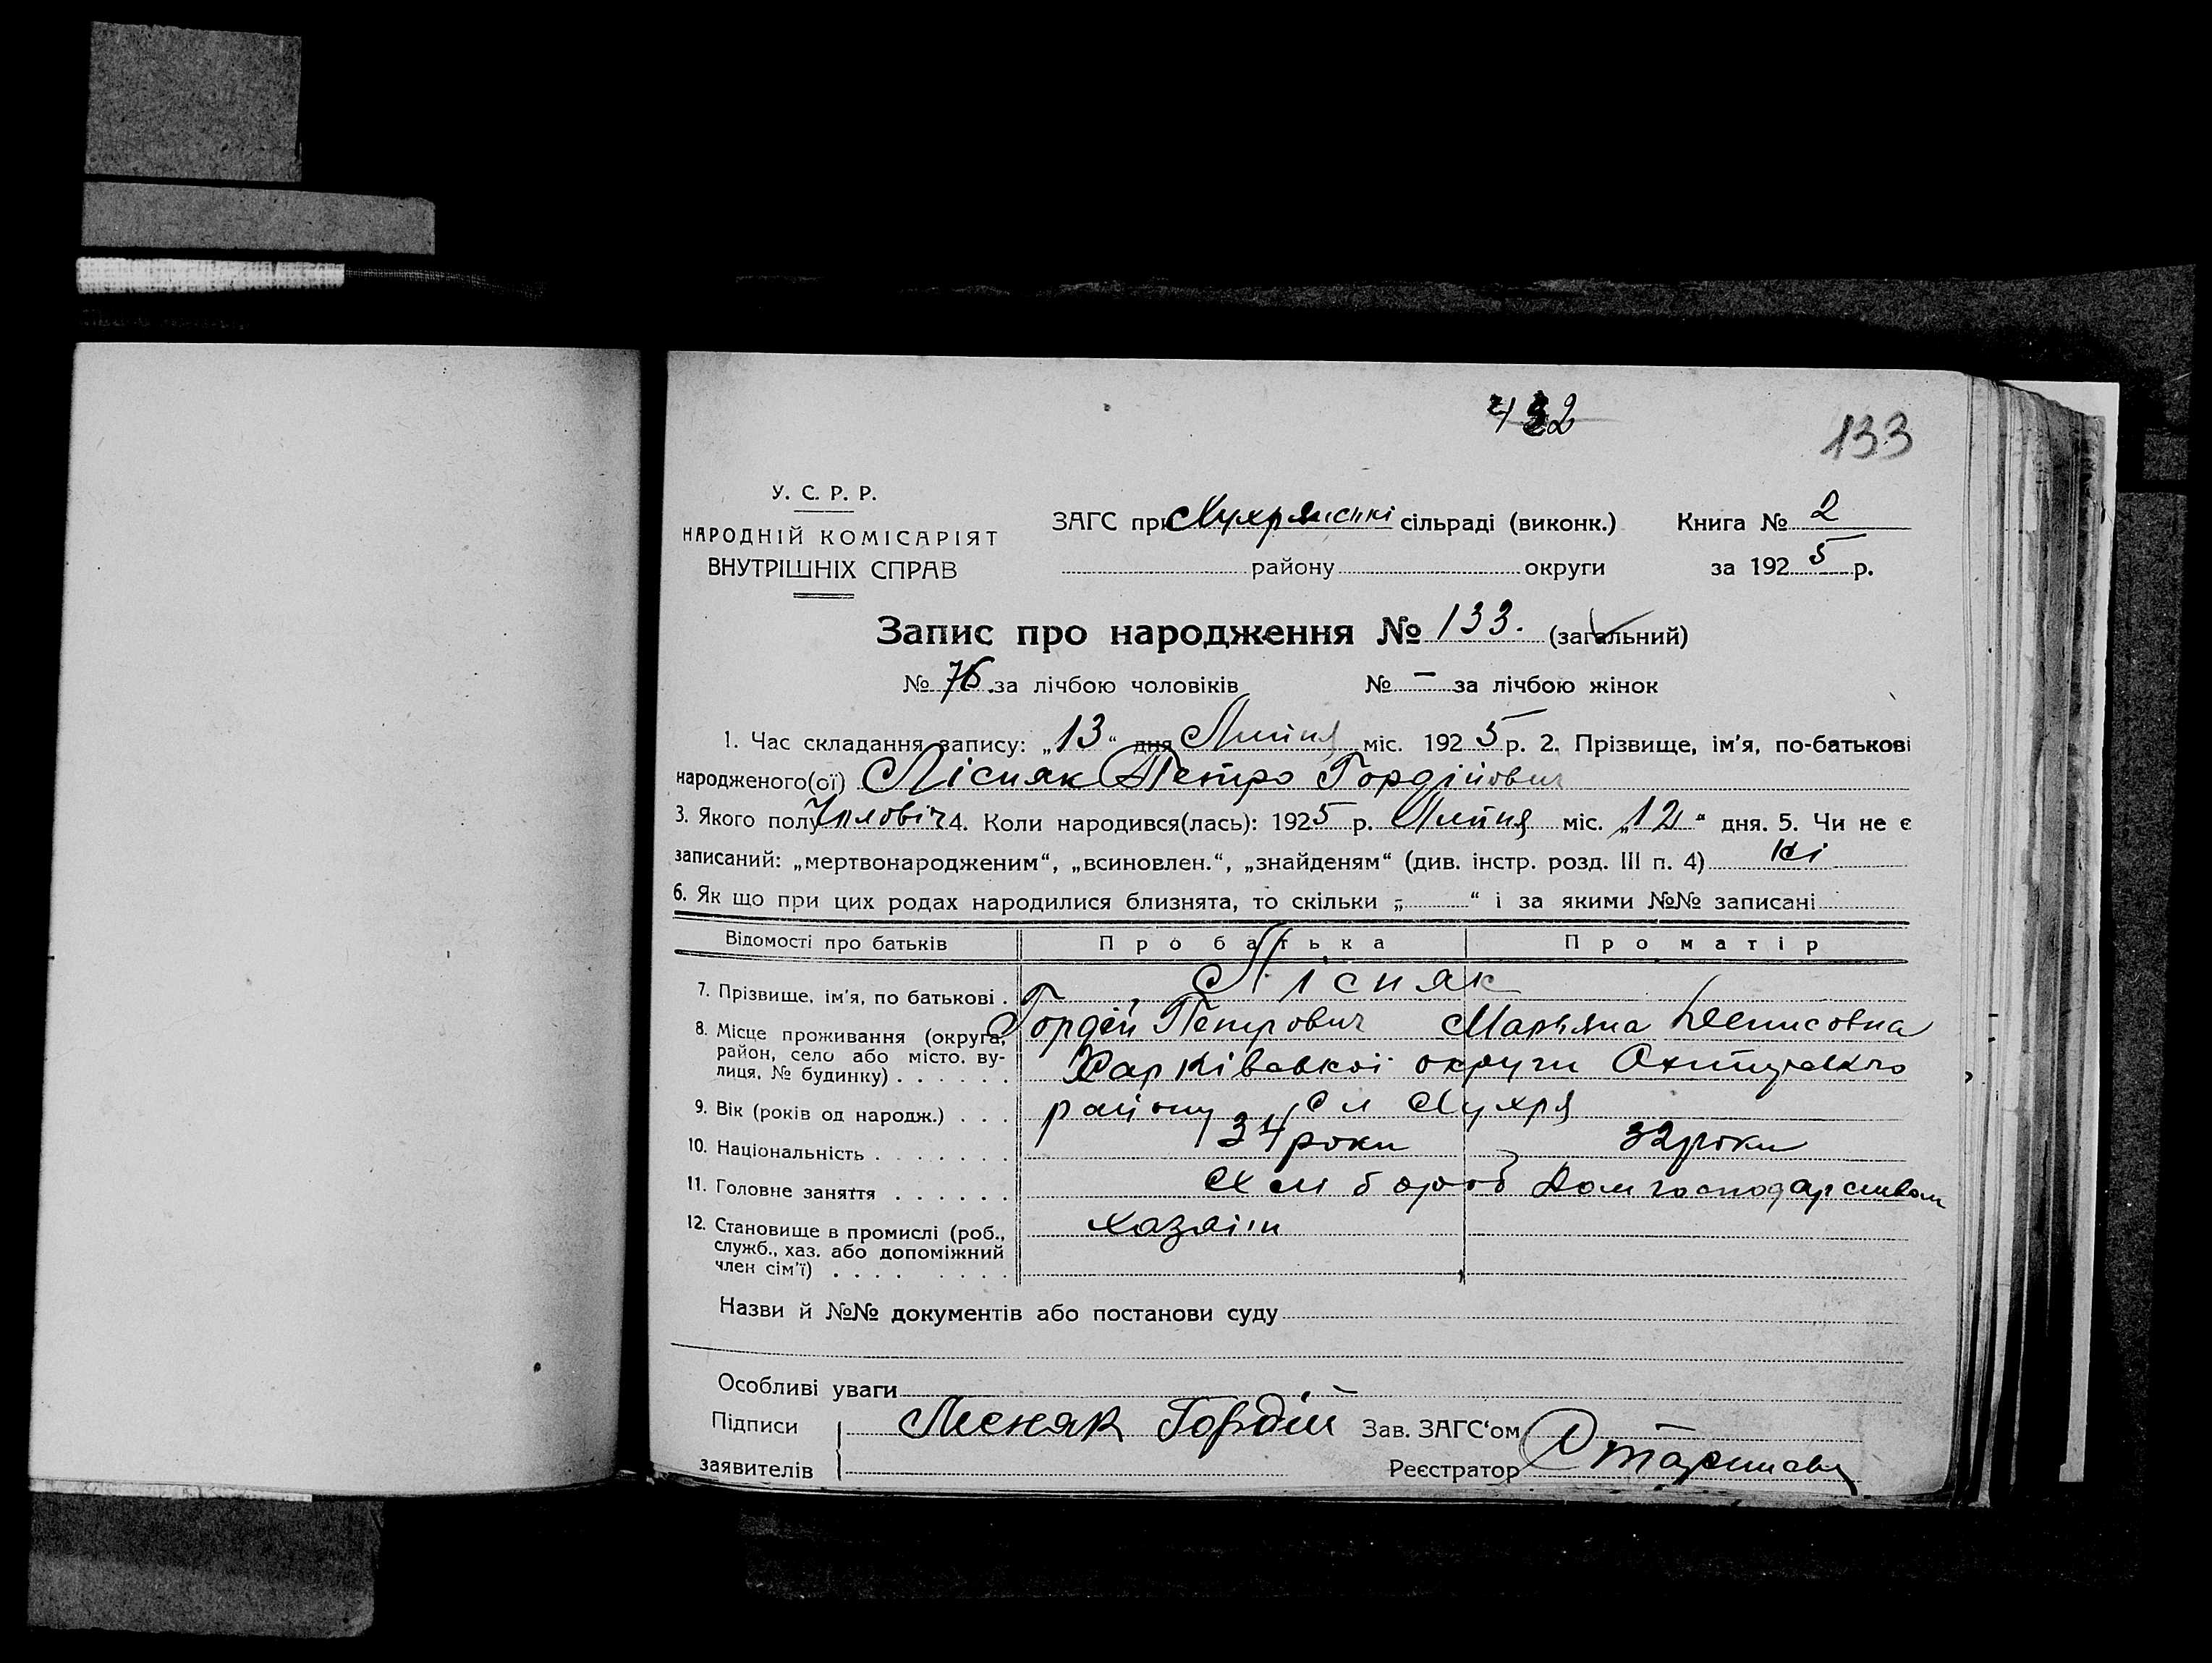 132
133
У. С. Р. Р.
НАРОДНІЙ КОМІСАРІЯТ
ВНУТРІШНІХ СПРАВ
ЗАГС при сільраді (виконк.) Книга № 2
району округи за 1925 р.
Запис про народження № 133. (загальний)
№ 76 за лічбою чоловіків № – за лічбою жінок
1. Час складання запису: „13“ дня Липня міс. 1925 р. 2. Прізвище, ім'я, по-батькові
народженого(ої) Лісняк Петро Гордійович
3. Якого полу Чоловіч 4. Коли народився(лась): 1925 р. Липня міс. „12“ дня. 5. Чи не є
записаний: „мертвонародженим“, „всиновлен.“, „знайденям“ (див. інстр. розд. III п. 4) Ні
6. Як що при цих родах народилися близнята, то скільки „ “ і за якими №№ записані
Відомості про батьків Про батька Про матір
7. Прізвище, ім'я, по батькові . Лісняк
Гордій Петрович Марьяна Денисовна
8. Місце проживання (округа, район, село або місто. вулиця, № будинку) . . . . . . Харківської округи
району
9. Вік (років од народж.) . . . 34 роки 32 роки
10. Національність . . . . . . .
11. Головне заняття . . . . . . Дом господарством
12. Становище в промислі (роб., служб., хаз. або допоміжний член сім'ї) . . . . . . . . хазяїн
Назви й №№ документів або постанови суду
Особливі уваги
Підписи Лісняк Гордій Зав. ЗАГС'ом
заявителів Реєстратор